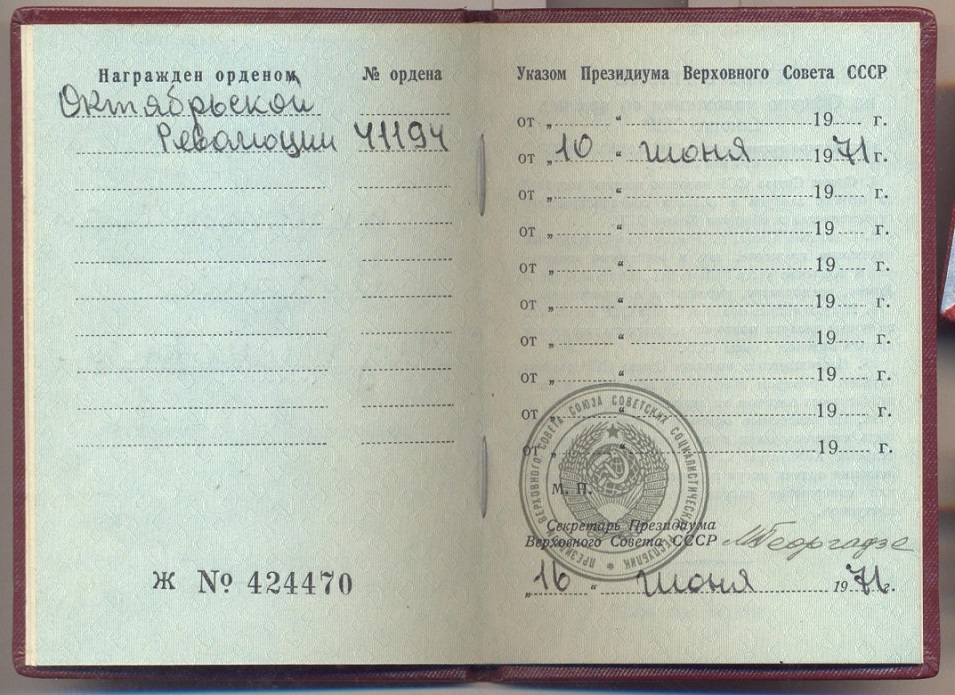 Награжден орденом № ордена
Октябрьской
Революции 41194
Ж № 424470
Указом Президиума Верховного Совета СССР
от „ “ 19 г.
от „10“ июня 1971 г.
от „ “ 19 г.
от „ “ 19 г.
от „ “ 19 г.
от „ “ 19 г.
от „ “ 19 г.
от „ “ 19 г.
от „ “ 19 г.
от „ “ 19 г.
ПРЕЗИДИУМ ВЕРХОВНОГО СОВЕТА СОЮЗА СОВЕТСКИХ СОЦИАЛИСТИЧЕСКИХ РЕСПУБЛИК
М. П.
Секретарь Президиума
Верховного Совета СССР МГеоргадзе
„16“ июня 1971 г.